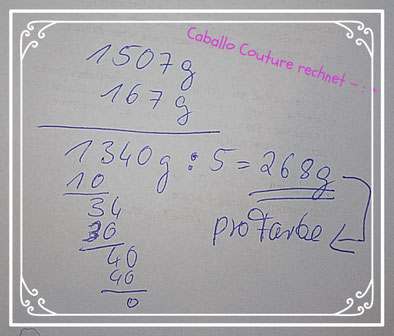 Caballo Couture rechnet - : + .
1507g
167g
1340g : 5 = 268g
10
34
30
40
40
0
pro Farbe